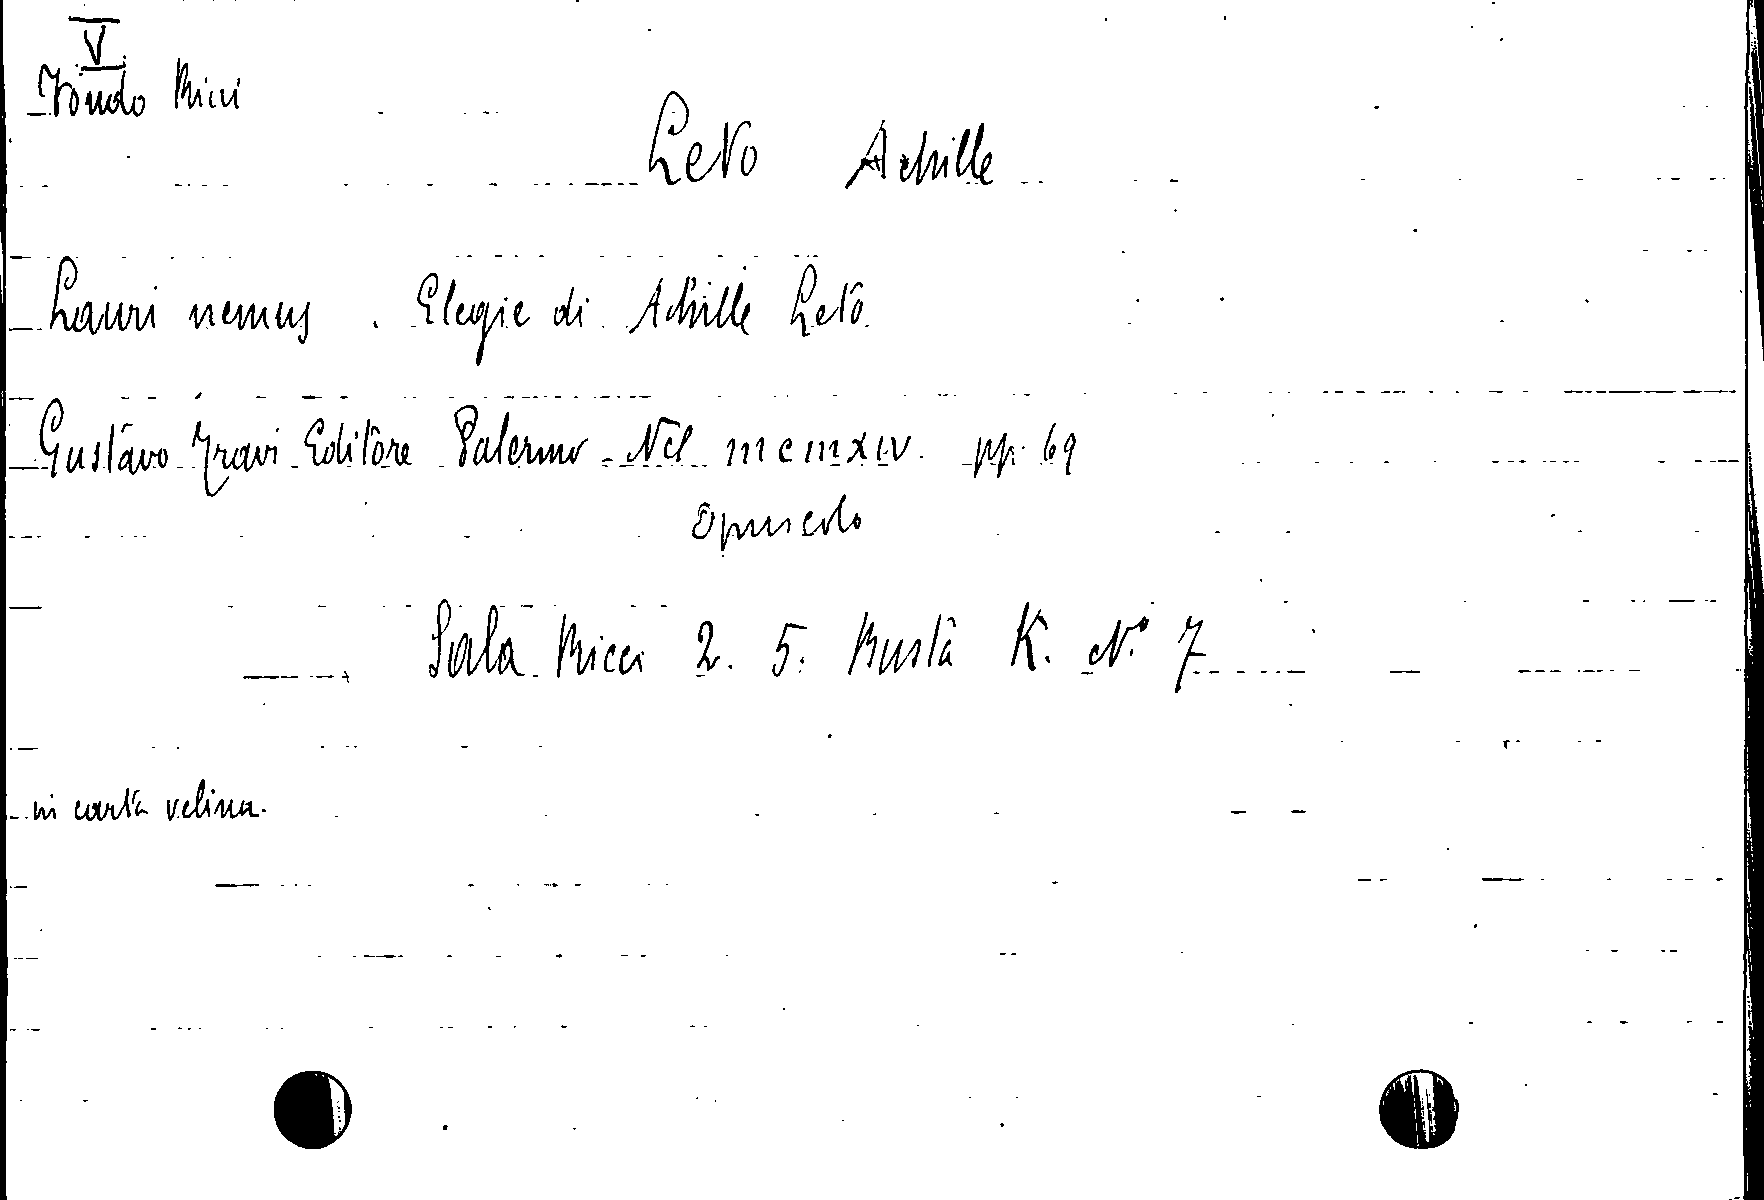 V
Fondo Ricci
Leto Achille
Lauri nemus. Elegie di Achille Leto
Gustavo Travi Editore Palermo Nel MCMXIV. pp. 69
opuscolo
Sala Ricci 2. 5. Busta K. N.° 7
in carta velina.